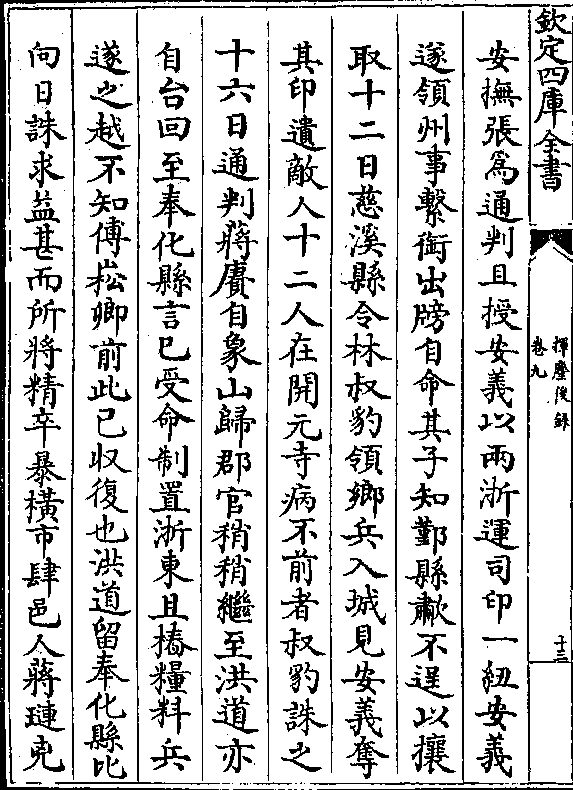 欽定四庫全書
揮麈後錄
卷九
十三
安撫張爲通判且授安義以兩浙運司印一紐安義
遂領州事繫銜出牓自命其子知鄞縣歗不逞以攘
取十二日慈溪縣令林叔豹領鄉兵入城見安義奪
其印遺敵人十二人在開元寺病不前者叔豹誅之
十六日通判蔣賡自象山歸郡官稍稍繼至洪道亦
自台回至奉化縣言已受命制置浙東且樁糧料兵
遂之越不知傅崧卿前此已收復也洪道留奉化縣比
向日誅求益甚而所將精卒暴橫市肆邑人蔣璉兇